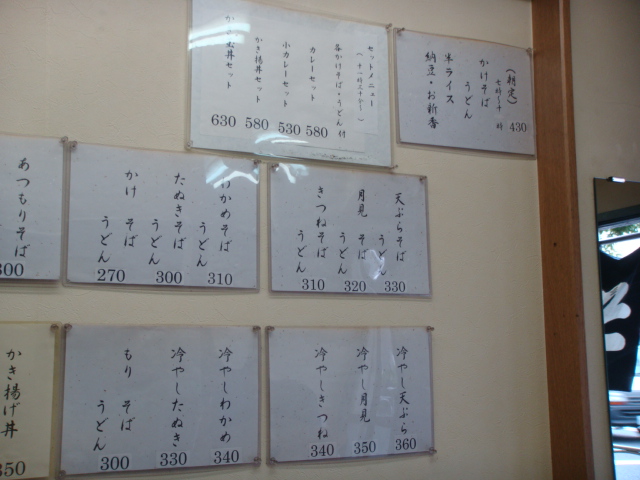 (朝定)
かけそば
うどん
半ライス
納豆・お新香
430
セットメニュー
各かけそば・うどん 付
カレーセット
580
小カレーセット
530
かき揚丼セット
580
630
天ぷらそば
うどん
330
月見 そば
うどん
320
きつねそば
うどん
310
わかめそば
うどん
310
たぬきそば
うどん
300
かけ そば
うどん
270
あつもりそば
300
冷やし天ぷら
360
冷やし月見
350
冷やしきつね
340
冷やしわかめ
340
冷やしたぬき
330
もり そば
うどん
300
かき揚げ丼
350